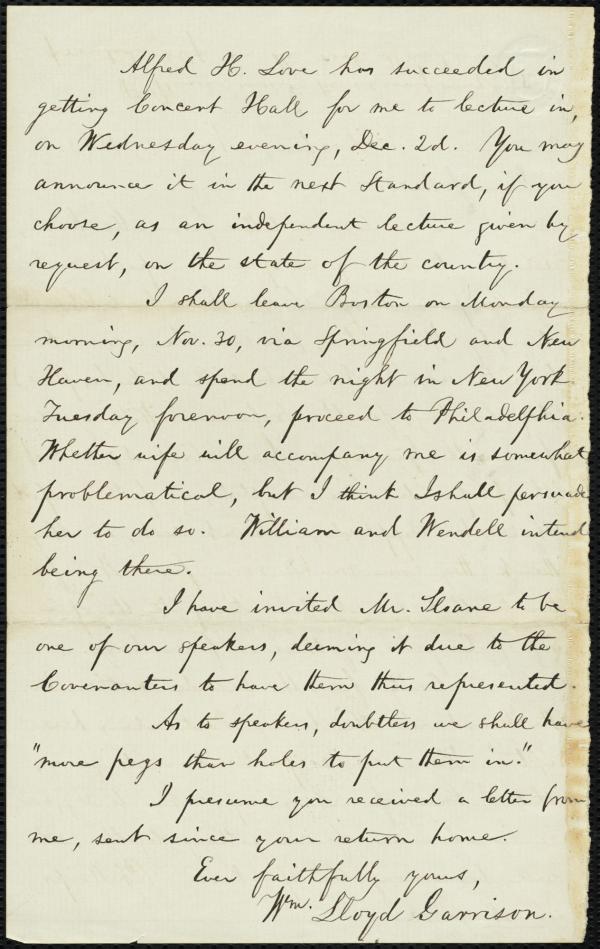 Alfred H. Love has succeeded in
getting Concert Hall for me to lecture in,
on Wednesday evening, Dec. 2d. You may
announce it in the next Standard, if you
choose, as an independent lecture given by
request, on the state of the country.
I shall leave Boston on Monday
morning, Nov. 30, via Springfield and New
Haven, and spend the night in New York.
Tuesday forenoon, proceed to Philadelphia.
Whether wife will accompany me is somewhat
problematical, but I think I shall persuade
her to do so. William and Wendell intend
being there.
I have invited Mr. Sloane to be
one of our speakers, deeming it due to the
Covenanters to have them thus represented.
As to speakers, doubtless we shall have
"more pegs than holes to put them in."
I presume you received a letter from
me, sent since your return home.
Ever faithfully yours,
Wm. Lloyd Garrison.